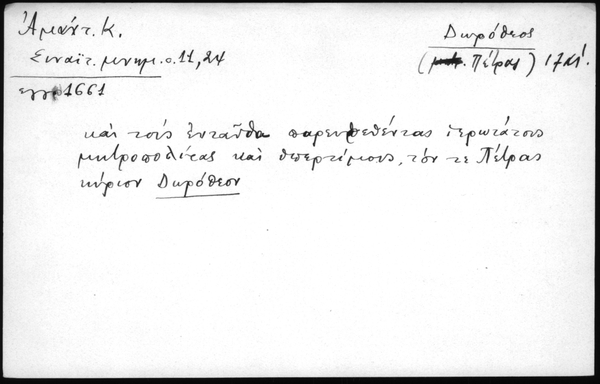 Ἀμάντ. Κ.
Σιναϊτ. μνημ. σ. 11, 24
εγγρ 1661
Δωρόθεος
( Πέτρας) 17 αἰ.
καὶ τοὺς ἐνταῦθα παρευρεθέντας ἱερωτάτους
μητροπολίτας καὶ ὑπερτίμους, τόν τε Πέτρας
κύριον Δωρόθεον